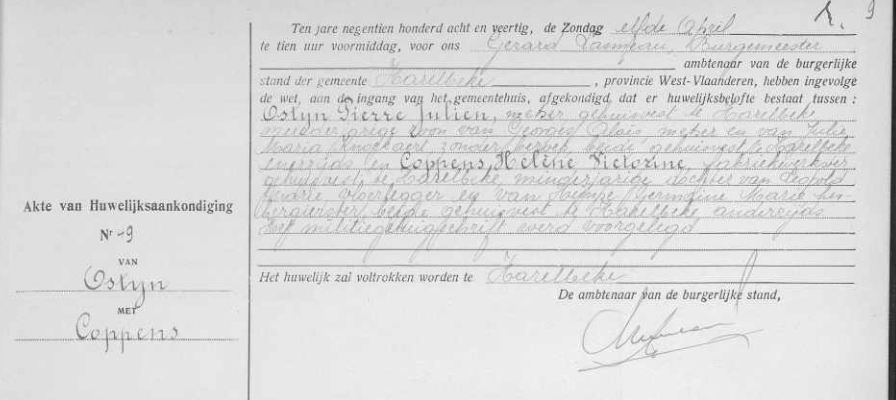 9
Ten jare negentien honderd acht en veertig, de Zondag elfde April
te tien uur voormiddag, voor ons Gerard Burgemeester
ambtenaar van de burgerlijke
stand der gemeente Harelbeke, provincie West-Vlaanderen, hebben ingevolge
de wet, aan de ingang van het gemeentehuis, afgekondigd, dat er huwelijksbelofte bestaat tussen :
Ostyn Pierre Julien, metser gehuisvest te Harelbeke
meerderjarige zoon van Georges Aloïs metser en van Julie
Maria Knockaert zonder beroep beide gehuisvest te Harelbeke
enerzijds en Coppens, Helène Victorine, fabriekwerkster
gehuisvest te Harelbeke minderjarige dochter van Leopold
vloerlegger en van Germaine Marie
beide gehuisvest te Harelbeke anderzijds
Het militiegetuigschrift werd voorgelegd
Akte van Huwelijksaankondiging
Nr 9
VAN
Ostyn
MET
Coppens
Het huwelijk zal voltrokken worden te Harelbeke
De ambtenaar van de burgerlijke stand,